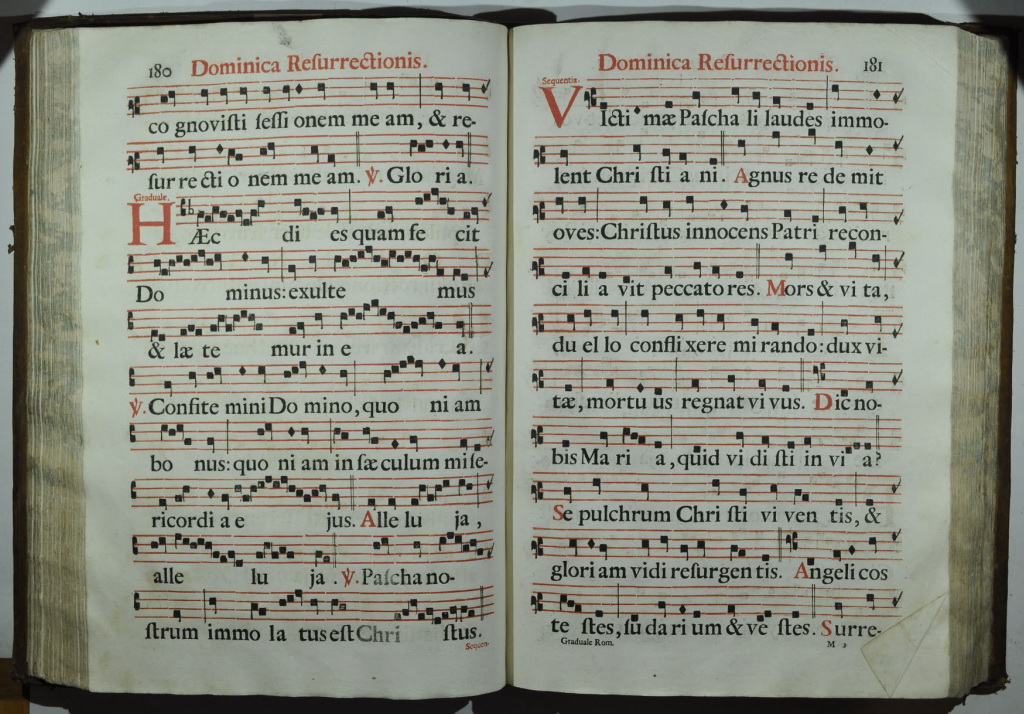 180 Dominica Reſurrectionis.
co gnoviſti ſeſſi onem me am, & re-
ſur re cti o nem me am. ℣. Glo ri a.
Graduale.
HÆc di es quam fe cit
Do minus: exulte mus
& læ te mur in e a.
℣. Confite mini Do mino, quo ni am
bo nus: quo ni am in ſæ culum miſe-
ricordi a e jus. Alle lu ja,
alle lu ja. ℣. Paſcha no-
ſtrum immo la tus eſt Chri ſtus.
Sequen-
Dominica Reſurrectionis. 181
Sequentia.
VIcti mæ Paſcha li laudes immo-
lent Chri ſti a ni. Agnus re de mit
oves: Chriſtus innocens Patri recon-
ci li a vit peccato res. Mors & vi ta,
du el lo confli xere mi rando: dux vi-
tæ, mortu us regnat vi vus. Dic no-
bis Ma ri a, quid vi di ſti in vi a?
Se pulchrum Chri ſti vi ven tis, &
glori am vidi reſurgen tis. Angeli cos
te ſtes, ſu da ri um & ve ſtes. Surre-
Graduale Rom. M